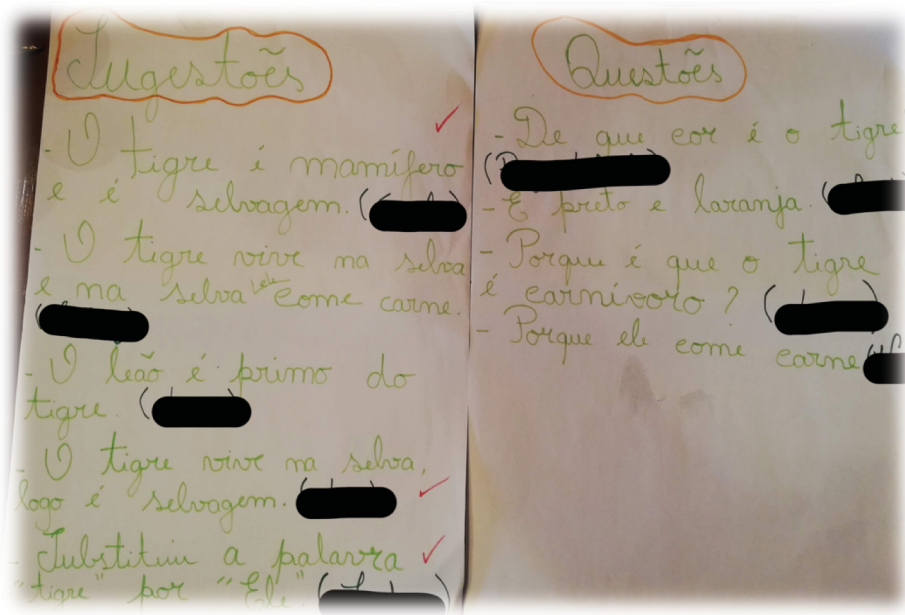 Sugestões
- O tigre é mamífero
e é selvagem. (
- O tigre vive na selva
e na selva ele come carne.
(
- O leão é primo do
tigre. (
- O tigre vive na selva,
logo é selvagem.
- Substituir a palavra
"tigre" por "Ele". (
Questões
- De que cor é o tigre
(
- É preto e laranja. (
- Porque é que o tigre
é carnívoro? ( )
- Porque ele come carne (